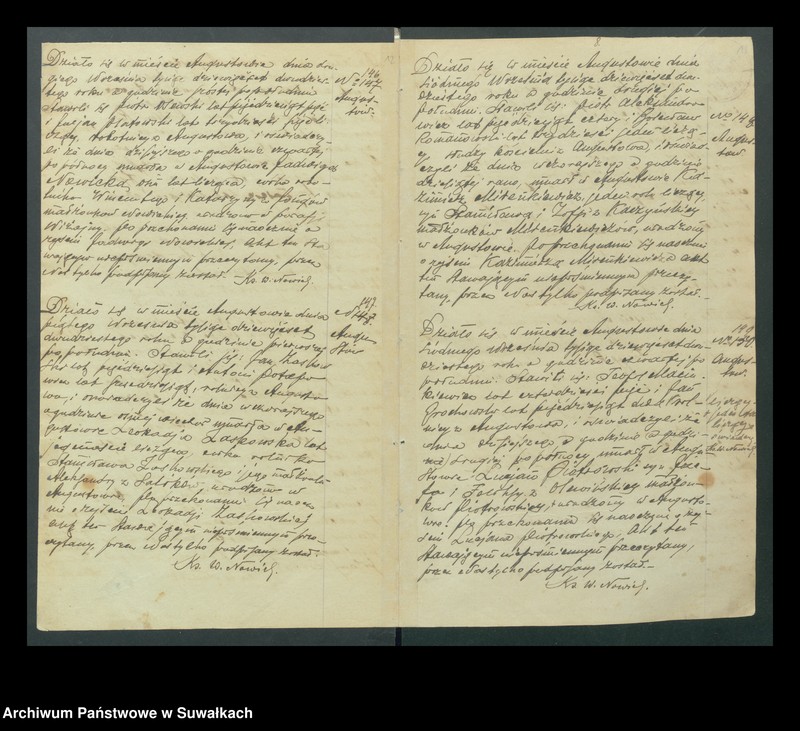 Działo się w mieście Augustowie dnia dru-
giego Września tysiąc dziewięćset dwudzies-
tego roku o godzinie po południu
Stawili się Piotr lat pięćdziesiąt pięć
i Julian Piotrowski lat
z Augustowa, i oświadczy-
li że dnia dzisiejszego o godzinie czwartej
po północy umarła w Augustowie Jadwiga
Nowicka, lat licząca, córka robo-
tnika Wincentego i Katarzyny z
małżonków Nowickich, urodzona w parafii
Wiżajny. Po przekonaniu się naocznie o
zgonie Jadwigi Nowickiej, Akt ten Sta-
wającym niepiśmiennym przeczytany, przez
Nas tylko podpisany został.
Ks. W. Nowicki.
146
No 147
Augus-
tów.
Działo się w mieście Augustowie dnia
piątego Września tysiąc dziewięćset
dwudziestego roku o godzinie pierwszej
po południu. Stawili się: Jan
lat pięćdziesiąt i Antoni Potapo-
wicz lat rolnicy z Augusto-
wa, i oświadczyli że dnia wczorajszego
o godzinie ósmej wieczór umarła w Au-
gustowie Leokadja Laskowska lat
jedenaście licząca, córka
Stanisława Laskowskiego i jego małżonki
Aleksandry z urodzona w
Augustowie. Po przekonaniu się naocz-
nie o zgonie Leokadji Laskowskiej
akt ten stawającym niepiśmiennym prze-
czytany, przez Nas tylko podpisany został.
Ks. W. Nowicki.
147
No 148.
Augus-
tów
8
Działo się w mieście Augustowie dnia
siódmego Września tysiąc dziewięćset dwu-
dziestego roku o godzinie drugiej po
południu. Stawili się: Piotr Aleksandro-
wicz lat pięćdziesiąt cztery i Bolesław
Romanowski lat trzydzieści jeden liczą-
cy słudzy kościelni z Augustowa, i oświad-
czyli że dnia wczorajszego o godzinie
dziesiątej rano, umarł w Augustowie Ka-
zimierz Miteńkiewicz, jeden rok liczący,
syn Stanisława i Zofji z Kaczyńskich
małżonków Miteńkiewiczów, urodzony
w Augustowie. Po przekonaniu się naocznie
o zgonie Kazimierza Miteńkiewicza akt
ten stawającym niepiśmiennym przeczy-
tany, przez Nas tylko podpisany został.
Ks. W. Nowicki.
No 148
Augus-
tów
Działo się w mieście Augustowie dnia
siódmego Września tysiąc dziewięćset dwu-
dziestego roku o godzinie czwartej po
południu. Stawili się: Józef Macin-
kiewicz lat czterdzieści pięć i Jan
Grochowski lat pięćdziesiąt dwa rol-
nicy z Augustowa, i oświadczyli że
dnia dzisiejszego o godzinie
drugiej po północy, umarł w Augu-
stowie Lucjan Piotrowski syn Józe-
fa i Teofily z małżon-
ków Piotrowskich, urodzony w Augusto-
wie. Po przekonaniu się naocznie o zgo-
nie Lucjana Piotrowskiego, Akt ten
stawającym niepiśmiennym przeczytany,
przez Nas tylko podpisany został.
Ks. W. Nowicki.
149
Augus-
tów.
Archiwum Państwowe w Suwałkach